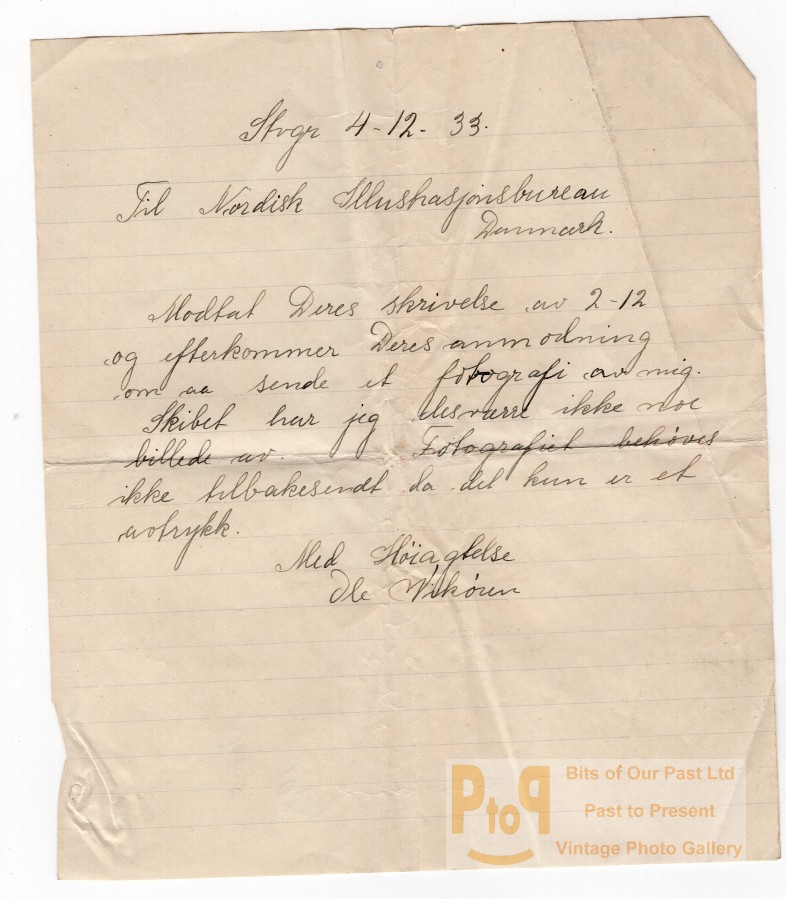 Stvgr 4-12-33.
Til Nordisk Illustrasjonsbureau
Danmark.
Modtat Deres skrivelse av 2-12
og efterkommer Deres anmodning
om aa sende et fotografi av mig.
Skibet har jeg desværre ikke noe
billede av. Fotografiet behøves
ikke tilbakesendt da det kun er et
avtrykk.
Med Høiagtelse
Ole
PtoP
Bits of Our Past Ltd
Past to Present
Vintage Photo Gallery